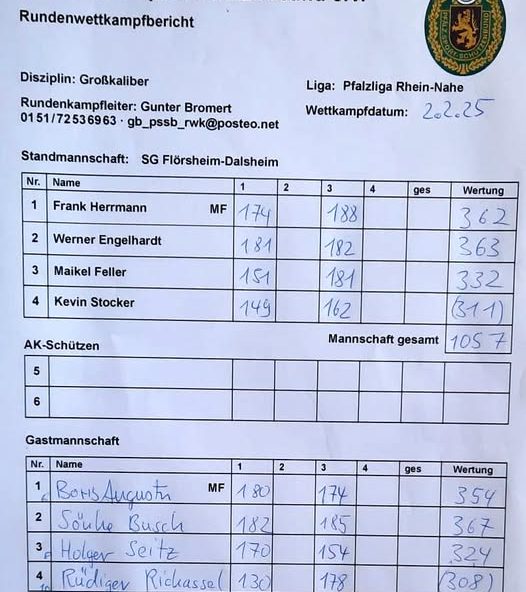 Rundenwettkampfbericht
Disziplin: Großkaliber
Liga: Pfalzliga Rhein-Nahe
Rundenkampfleiter: Gunter Bromert
Wettkampfdatum: 2.2.25
0151/72536963 · gb_pssb_rwk@posteo.net
Standmannschaft: SG Flörsheim-Dalsheim
Nr. Name 1 2 3 4 ges Wertung
1 Frank Herrmann MF 174 188 362
2 Werner Engelhardt 181 182 363
3 Maikel Feller 151 181 332
4 Kevin Stocker 149 162 (311)
Mannschaft gesamt 1057
AK-Schützen
5
6
Gastmannschaft
Nr. Name 1 2 3 4 ges Wertung
1 Boris Augustin MF 180 174 354
2 Sönke Busch 182 185 367
3 Holger Seitz 170 154 324
4 Rüdiger Rickassel 130 178 (308)